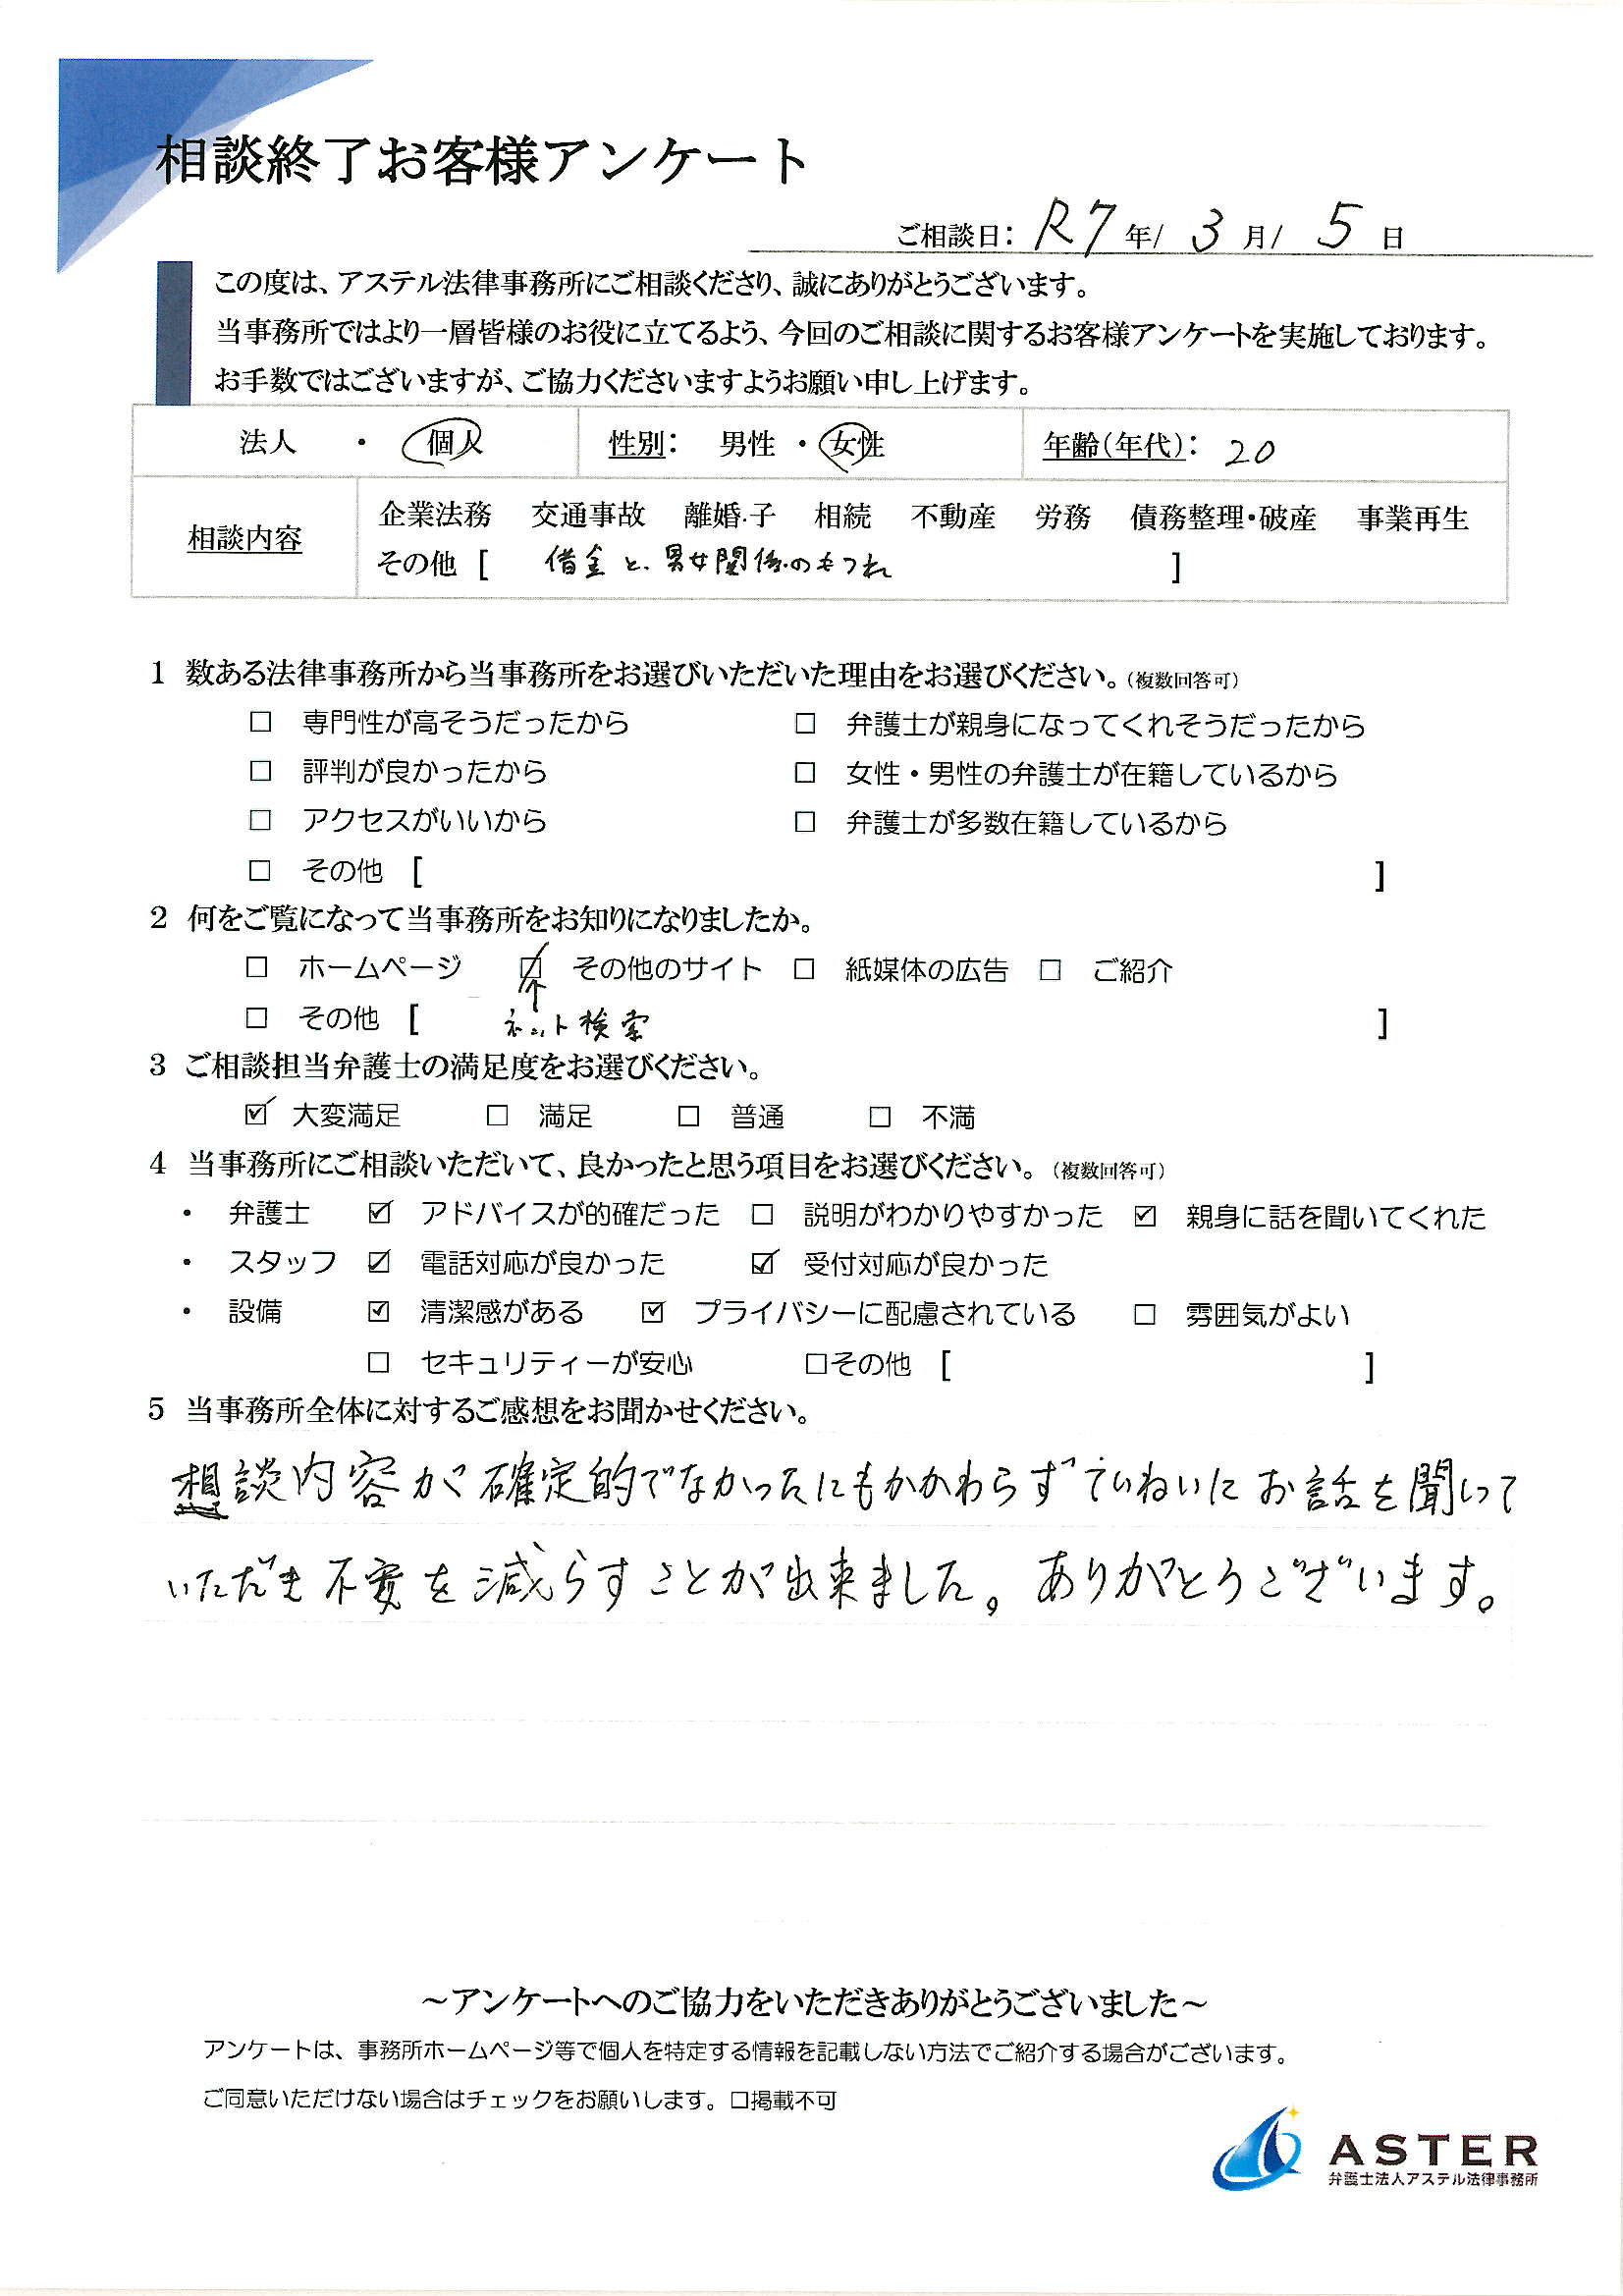 相談終了お客様アンケート
ご相談日： R7 年/ 3 月/ 5 日
この度は、アステル法律事務所にご相談くださり、誠にありがとうございます。
当事務所ではより一層皆様のお役に立てるよう、今回のご相談に関するお客様アンケートを実施しております。
お手数ではございますが、ご協力くださいますようお願い申し上げます。
法人 ・ 個人 性別： 男性 ・ 女性 年齢(年代)： 20
相談内容 企業法務 交通事故 離婚・子 相続 不動産 労務 債務整理・破産 事業再生
その他 [ 借金と、男女関係のもつれ ]
1 数ある法律事務所から当事務所をお選びいただいた理由をお選びください。(複数回答可)
□ 専門性が高そうだったから □ 弁護士が親身になってくれそうだったから
□ 評判が良かったから □ 女性・男性の弁護士が在籍しているから
□ アクセスがいいから □ 弁護士が多数在籍しているから
□ その他 [ ]
2 何をご覧になって当事務所をお知りになりましたか。
□ ホームページ ☑ その他のサイト □ 紙媒体の広告 □ ご紹介
□ その他 [ ↑ ネット検索 ]
3 ご相談担当弁護士の満足度をお選びください。
☑ 大変満足 □ 満足 □ 普通 □ 不満
4 当事務所にご相談いただいて、良かったと思う項目をお選びください。(複数回答可)
・ 弁護士 ☑ アドバイスが的確だった □ 説明がわかりやすかった ☑ 親身に話を聞いてくれた
・ スタッフ ☑ 電話対応が良かった ☑ 受付対応が良かった
・ 設備 ☑ 清潔感がある ☑ プライバシーに配慮されている □ 雰囲気がよい
□ セキュリティーが安心 □その他 [ ]
5 当事務所全体に対するご感想をお聞かせください。
相談内容が確定的でなかったにもかかわらずていねいにお話を聞いて
いただき不安を減らすことが出来ました。ありがとうございます。
～アンケートへのご協力をいただきありがとうございました～
アンケートは、事務所ホームページ等で個人を特定する情報を記載しない方法でご紹介する場合がございます。
ご同意いただけない場合はチェックをお願いします。□掲載不可
ASTER
弁護士法人アステル法律事務所